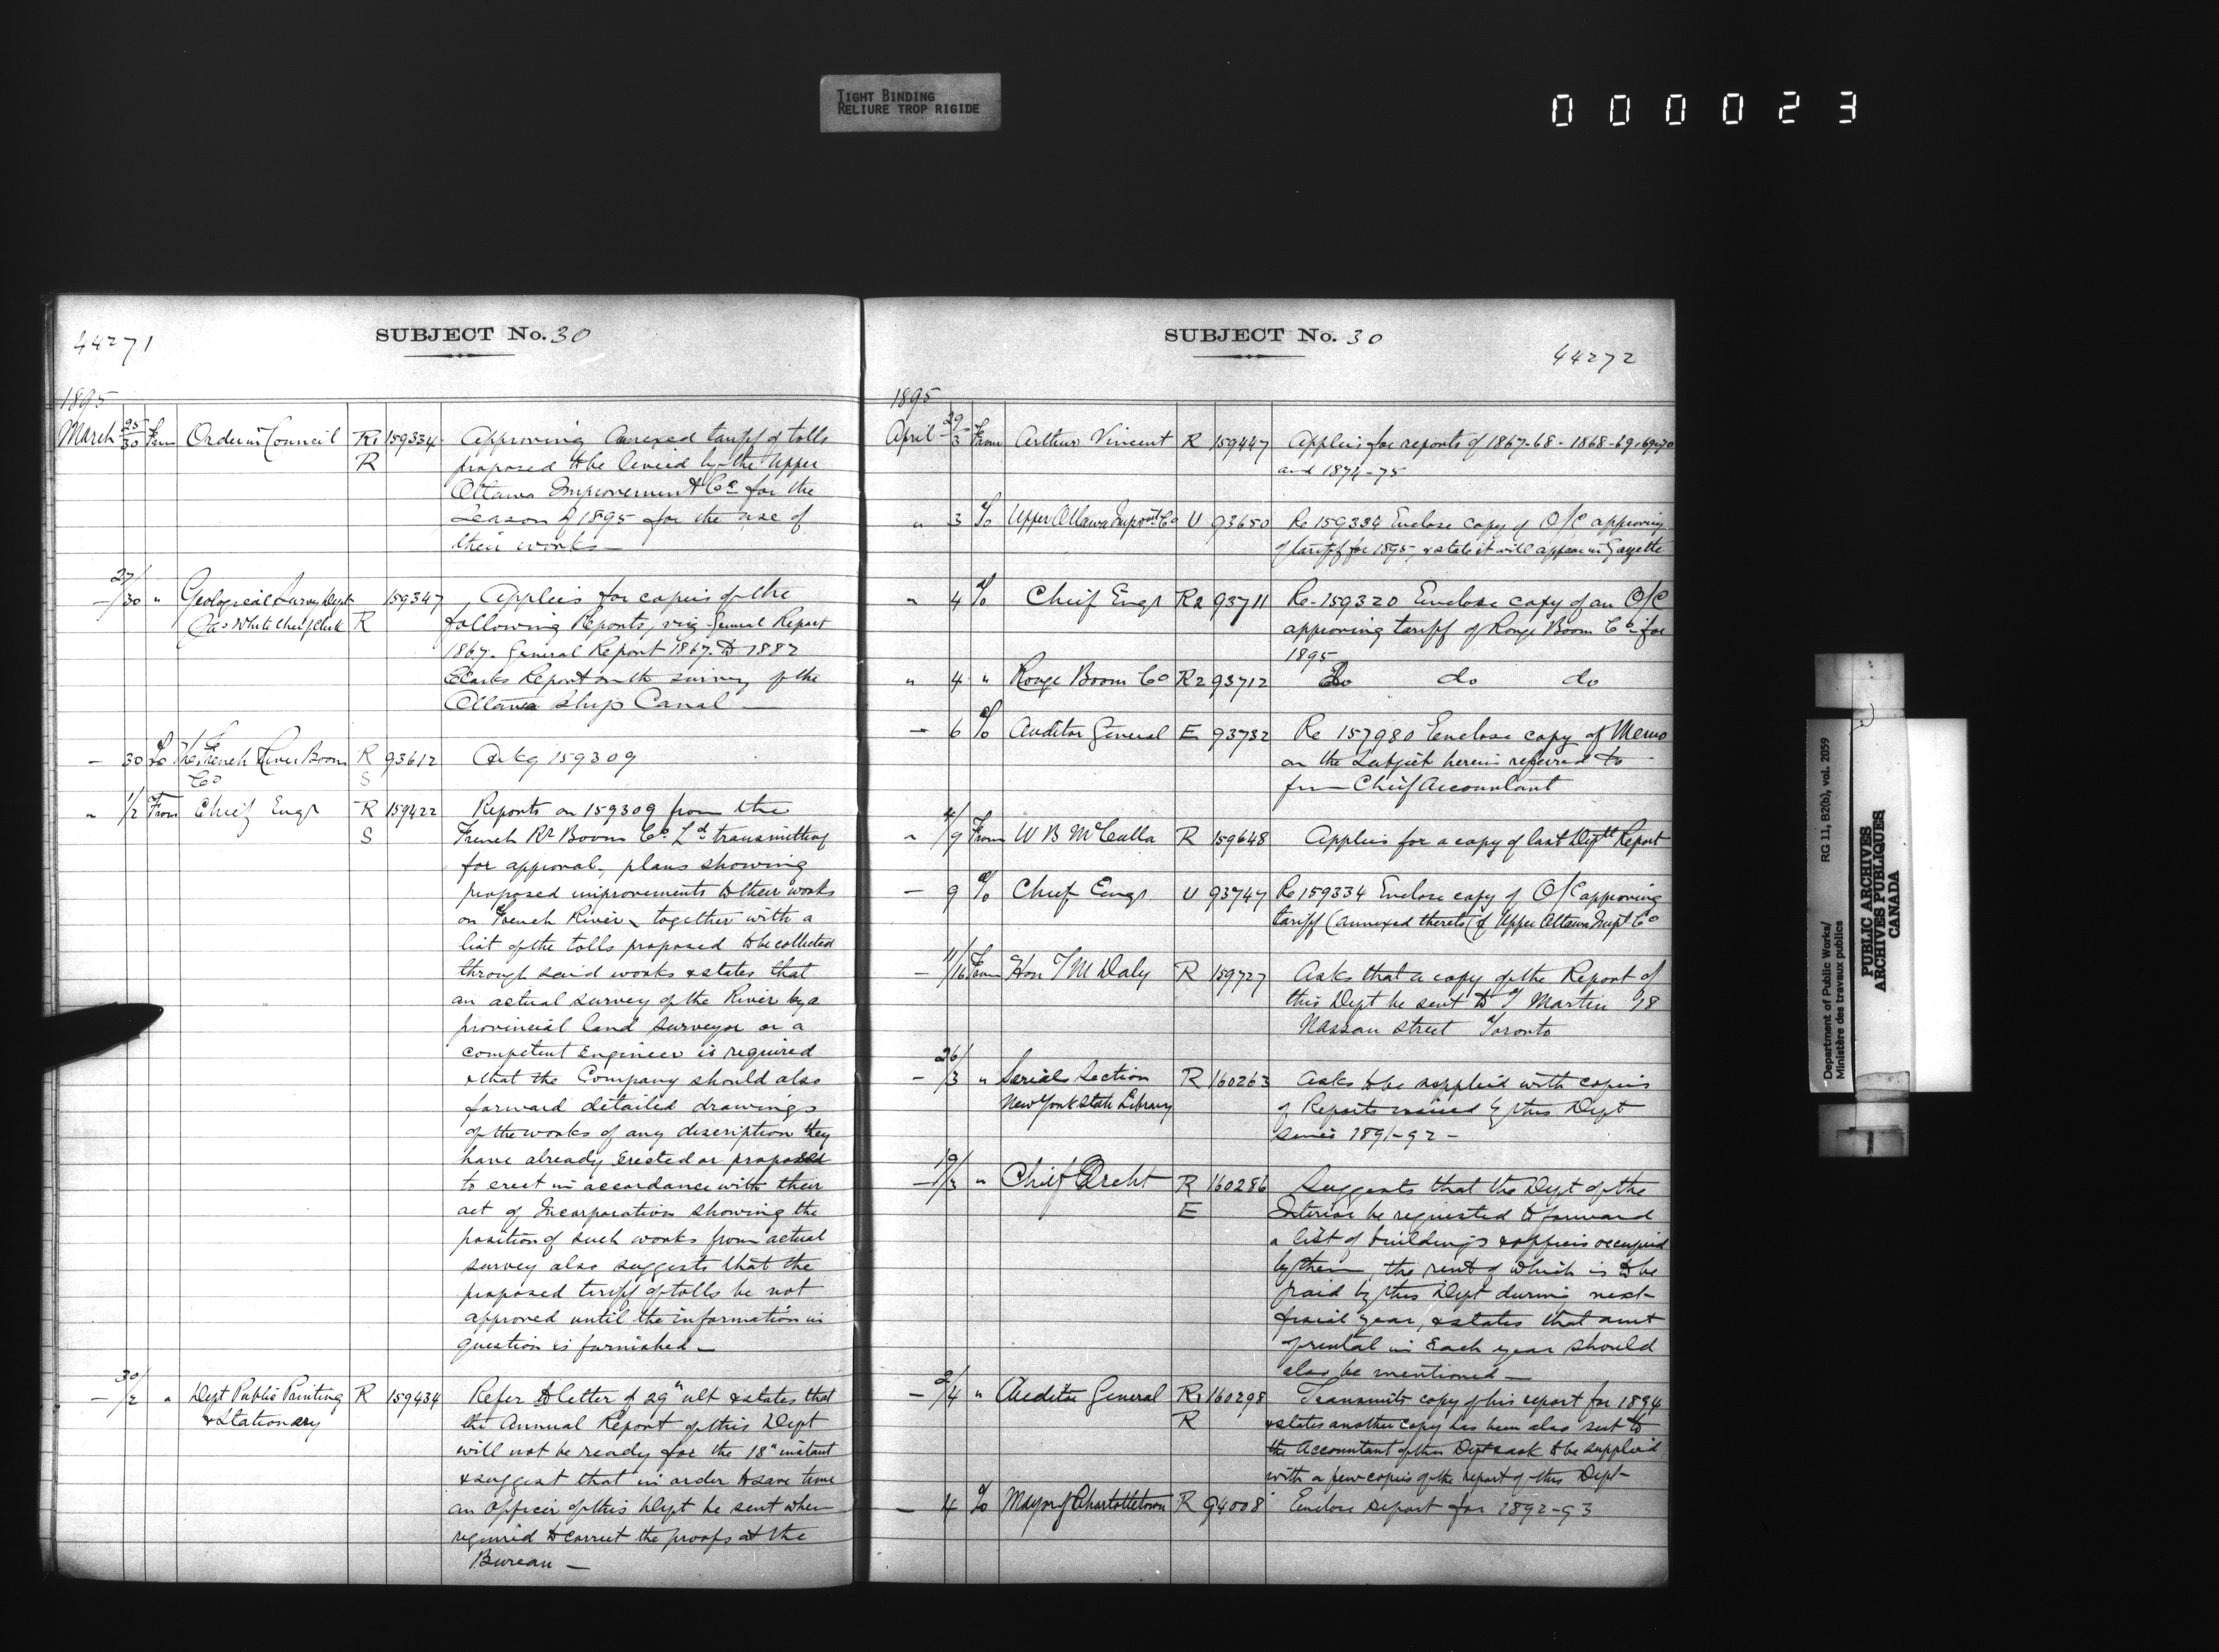 TIGHT BINDING
RELIURE TROP RIGIDE
000023
44271
SUBJECT No. 30
1895
March 25/30 From Order in Council R1 159334 Approving annexed tariff of tolls
R proposed to be levied by the Upper
Ottawa Improvement Co. for the
Season of 1895 for the use of
their works
27/30 " Geological Survey Dept 159347 Applies for copies of the
Jas White Chief Clerk R following Reports, viz General Report
1867. General Report 1867 to 1882
Clarks Report on the survey of the
Ottawa Ship Canal
- 30 To The French River Boom R 93612 Ackg 159309
Co S
" 1/2 From Chief Engr R 159422 Reports on 159309 from the
S French Rr Boom Co. Ld. transmitting
for approval, plans showing
proposed improvements to their works
on French River, together with a
list of the tolls proposed to be collected
through said works & states that
an actual survey of the River by a
provincial land surveyor or a
competent Engineer is required
& that the Company should also
forward detailed drawings
of the works of any discription they
have already Erected or proposed
to erect in accordance with their
act of Incorporation showing the
position of such works from actual
survey also suggests that the
proposed tariff of tolls be not
approved until the information in
question is furnished
- 30/2 " Dept Public Printing R 159434 Refer to letter of 29" ult & states that
& Stationary the Annual Report of this Dept
will not be ready for the 18" instant
& suggest that in order to save time
an Officer of this Dept be sent when
required to correct the proofs at the
Bureau
SUBJECT No. 30
44272
1895
April 29/3 From Arthur Vincent R 159447 Applies for reports of 1867-68 - 1868-69, 69-70
and 1874-75
" 3 To Upper Ottawa Impvmt Co U 93650 Re 159334 Enclose copy of O/C approving
of tariff for 1895, & state it will appear in Gazette
" 4 To Chief Engr R2 93711 Re 159320 Enclose copy of an O/C
approving tariff of Rouge Boom Co. for
1895
" 4 " Rouge Boom Co R2 93712 Do do do
- 6 To Auditor General E 93732 Re 157980 Enclose copy of Memo
on the Subject herein referred to
from Chief Accountant
" 4/9 From W B McCulla R 159648 Applies for a copy of last Deptl Report
- 9 To Chief Engr. U 93747 Re 159334 Enclose copy of O/C approving
tariff (annexed thereto) of Upper Ottawa Impt Co
- 11/16 From Hon T M Daly R 159727 Asks that a copy of the Report of
this Dept be sent to J Martin 18
Nassau Street Toronto
- 26/3 " Serial Section R 160263 Asks to be supplied with copies
New York State Library of Reports issued by this Dept
since 1891-92 -
- 19/3 " Chief Archt R 160286 Suggests that the Dept of the
E Interior be requested to forward
a list of buildings & offices occupied
by them the rent of which is to be
paid by this Dept during next
fiscal year, & states that amt
of rental in Each year should
also be mentioned
- 2/4 " Auditor General R1 160298 Transmits copy of his report for 1894
R & states another copy has been also sent to
the Accountant of this Dept & ask to be supplied
with a few copies of the report of this Dept-
- 4 To Mayor of Charlottetown R 94008 Enclose report for 1892-93
Department of Public Works/
Ministère des travaux publics
RG 11, B2(b), vol. 2059
PUBLIC ARCHIVES
ARCHIVES PUBLIQUES
CANADA